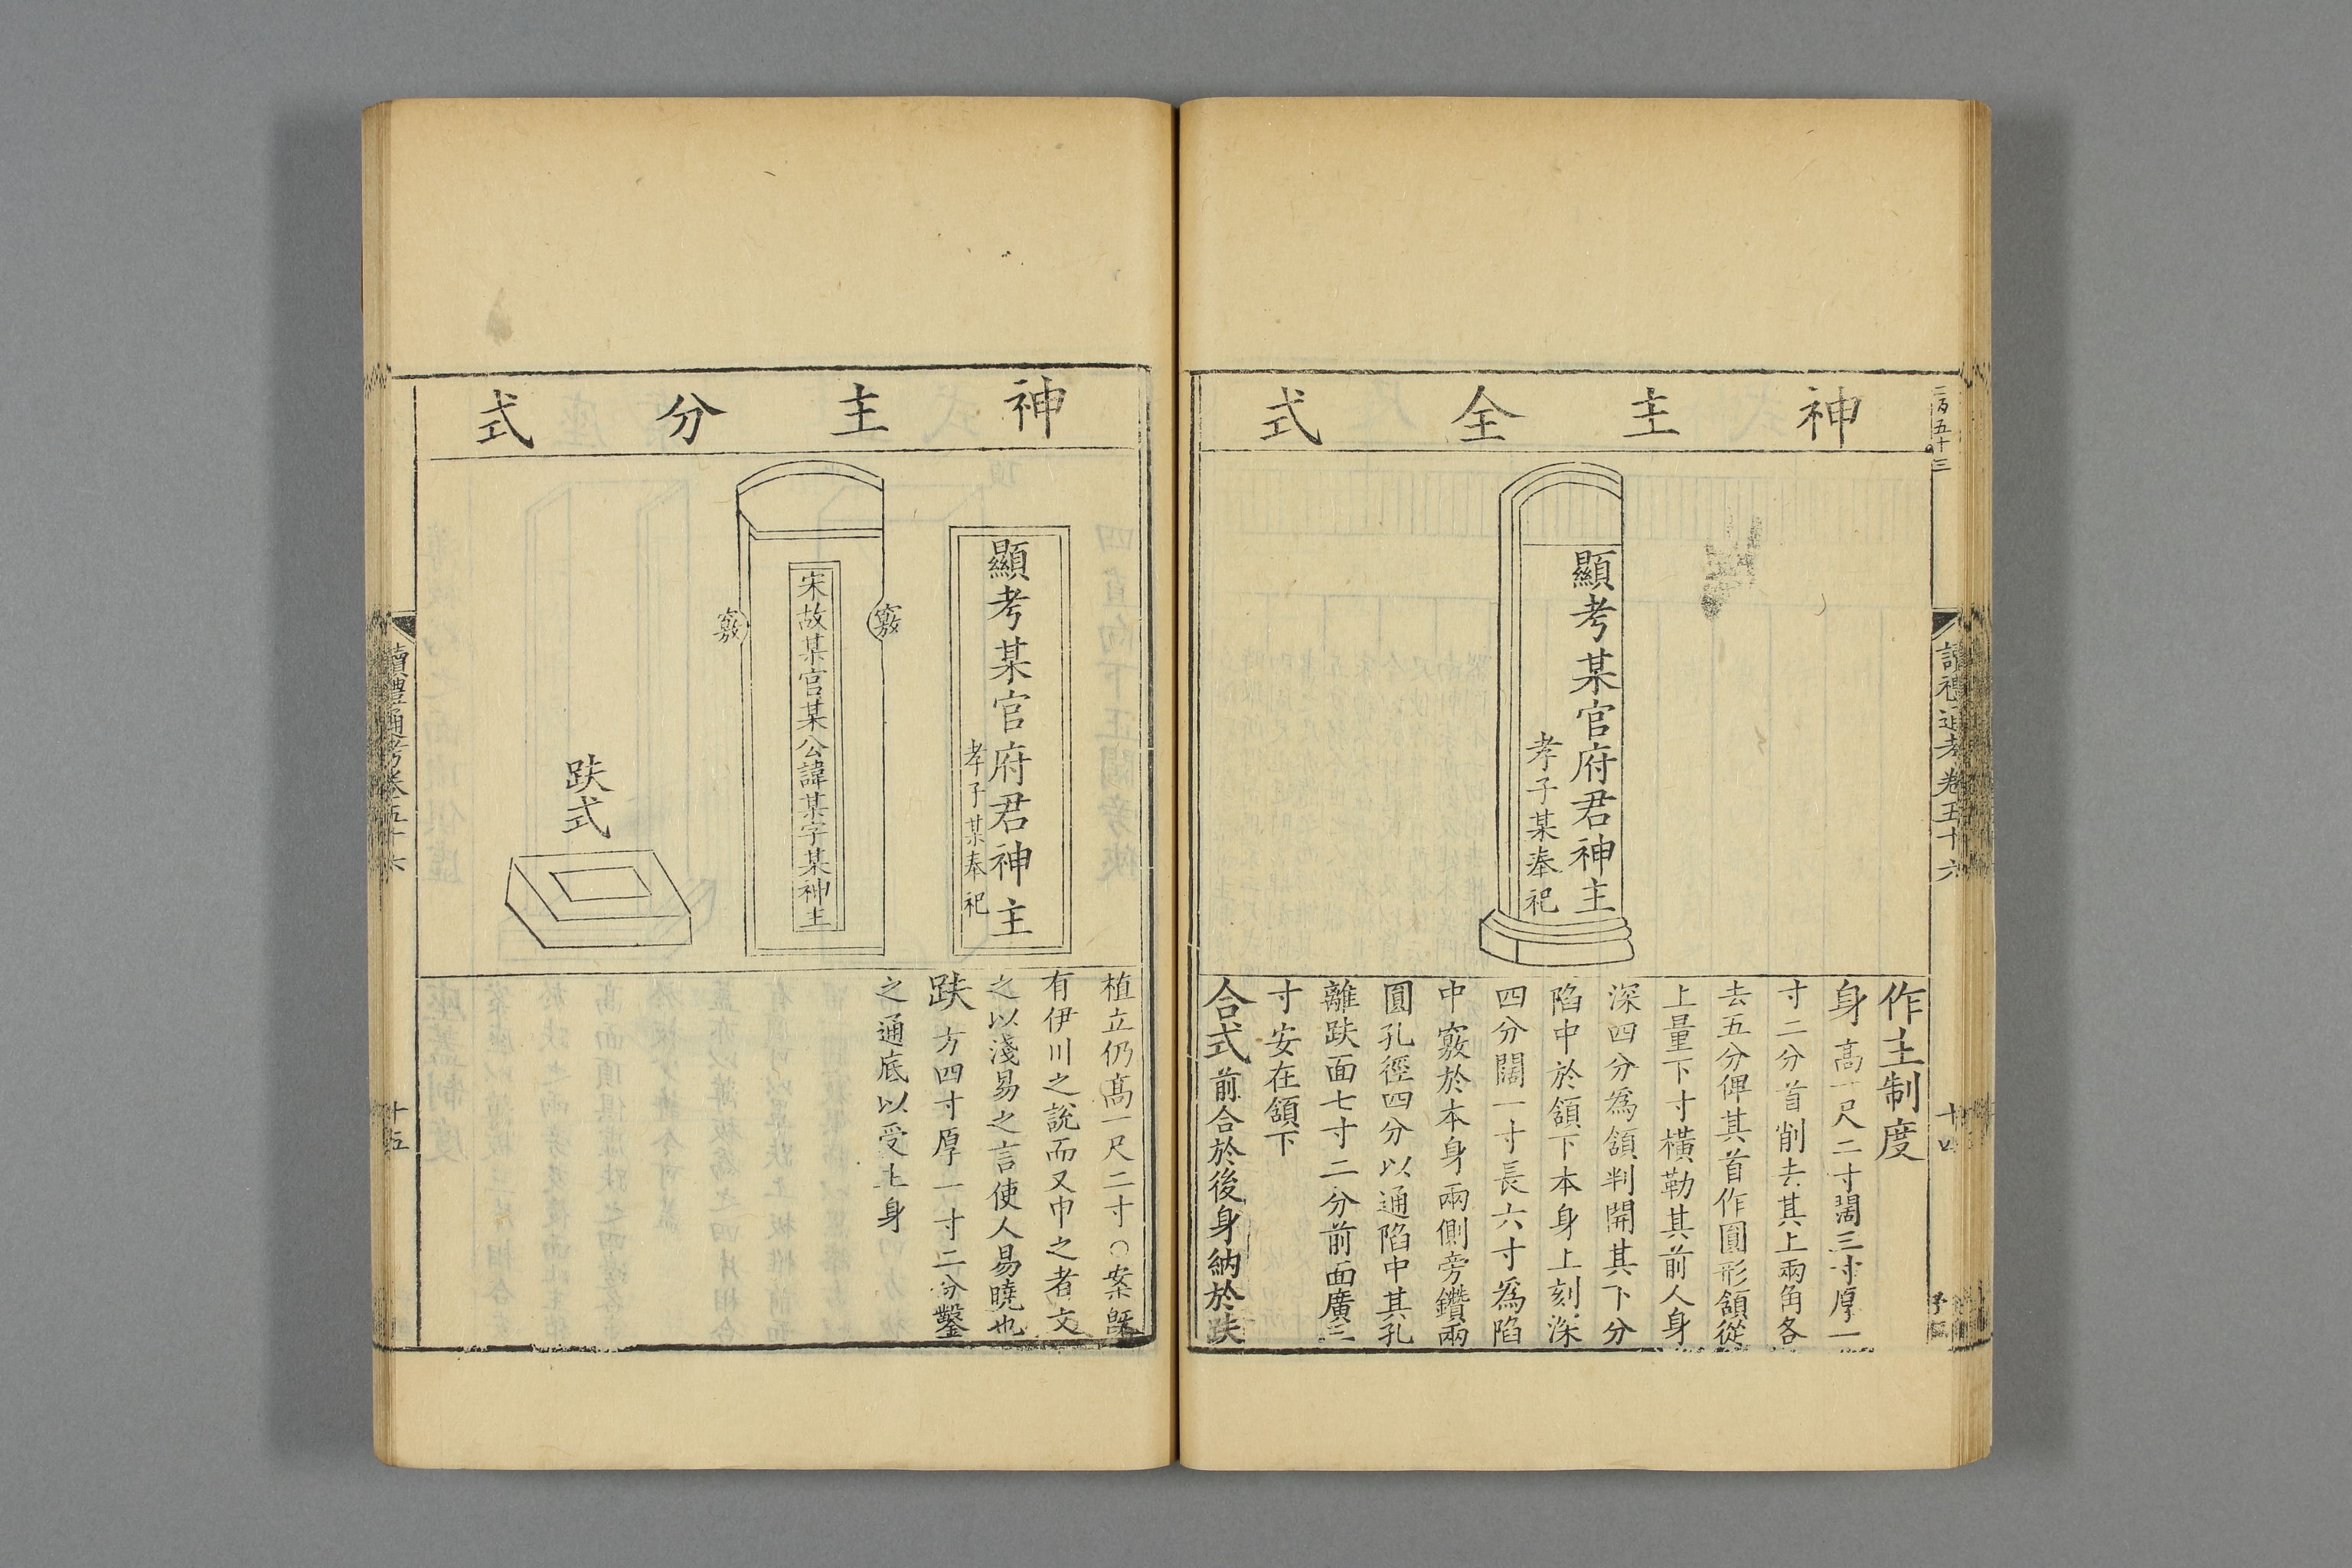 神主全式
顯考某官府君神主
孝子某奉祀
作主制度
身高一尺二寸闊三寸厚一
寸二分首削去其上兩角各
去五分俾其首作圓形頷從
上量下寸橫勒其前人身
深四分為頷判開其下分
陷中於頷下本身上刻深
四分闊一寸長六寸為陷
中竅於本身兩側旁鑽兩
圓孔徑四分以通陷中其孔
離趺面七寸二分前面廣三
寸安在頷下
合式前合於後身納於趺
讀禮通考卷五十六
二百五十三
神主分式
顯考某官府君神主
孝子某奉祀
竅
宋故某官某公諱某字某神主
竅
趺式
植立仍高一尺二寸○案旣
有伊川之說而又巾之者文
之以淺易之言使人易曉也
趺方四寸厚一寸二分鑿
之通底以受主身
讀禮通考卷五十六
十五